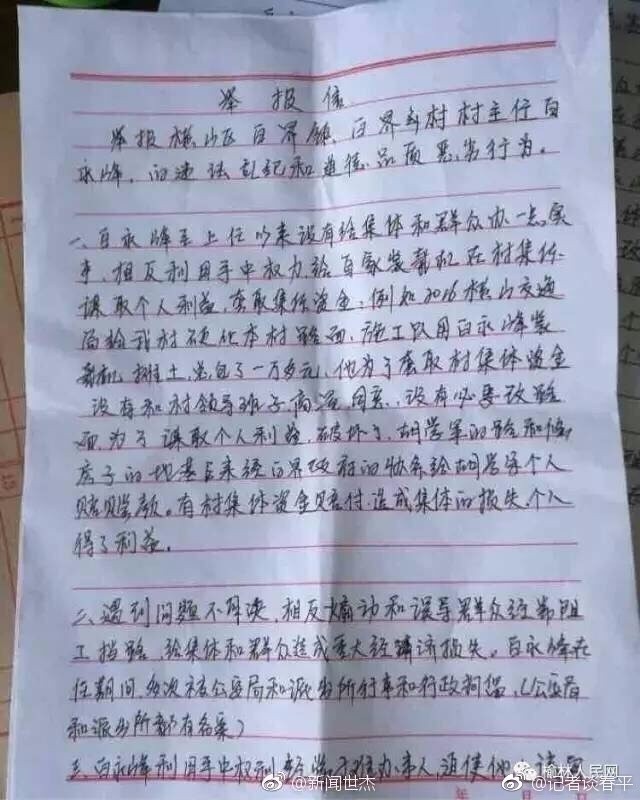 举报信
举报横山区白界镇、白界乡村村主任白
永峰,的违法乱纪和道德品质恶劣行为。
一、白永峰至上任以来没有给集体和群众办一点实
事,相反利用手中权力给自家装载机在村集体
谋取个人利益,套取集体资金,例如2016横山交通
局给我村硬化本村路面,施工队用白永峰装
载机推土,总包了一万多元,他为了套取村集体资金
没有和村领导班子商量同意,没有必要改路
面,为了谋取个人利益,破坏了,胡学军的路和修
房子的地基后来经白界政府的协条给胡学军个人
赔贰额。有村集体资金赔付,造成集体的损失,个人
得了利益。
二、遇到问题不解决,相反煽动和误导群众经常阻
工挡路,给集体和群众造成重大经济损失。白永峰在
任期间多次被公安局和派出所行事和行政拘留,(公安局
和派出所都有名案)
三、白永峰利用手中权利
年 月 日
榆林人民网
@新闻世杰
@记者谈春平